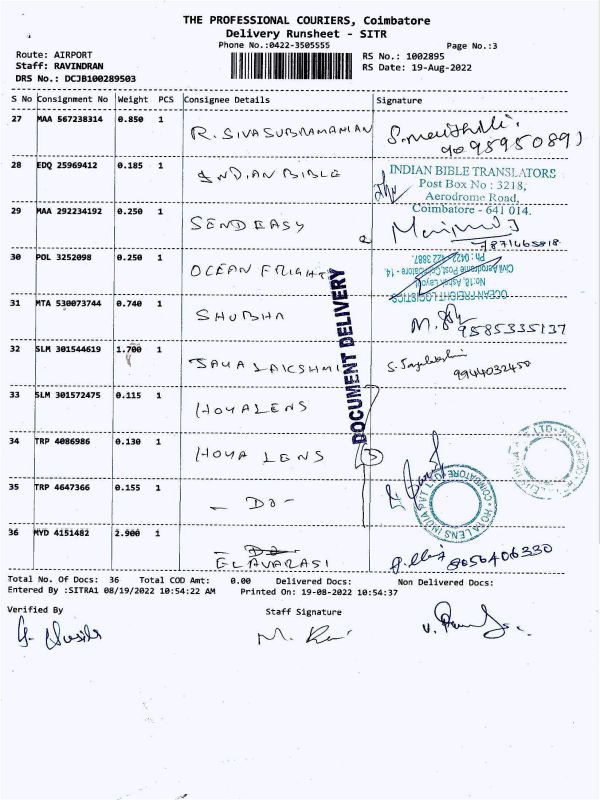 THE PROFESSIONAL COURIERS, Coimbatore
Delivery Runsheet - SITR
Phone No.:0422-3505555 Page No.:3
Route: AIRPORT RS No.: 1002895
Staff: RAVINDRAN RS Date: 19-Aug-2022
DRS No.: DCJB100289503
S No Consignment No Weight PCS Consignee Details Signature
27 MAA 567238314 0.850 1 R. SIVASUBRAMANIAN
28 EDQ 25969412 0.185 1 INDIAN BIBLE
INDIAN BIBLE TRANSLATORS
Post Box No : 3218,
Aerodrome Road,
Coimbatore - 641 014.
29 MAA 292234192 0.250 1 SENDEASY
30 POL 3252098 0.250 1 OCEAN FRIGHT
OCEAN FREIGHT LOGISTICS
No:18, Ashok Layout
Civil Aerodrome Post, Coimbatore - 14.
Ph : 0422- 422 3887
31 MTA 530073744 0.740 1 SHUBHA 9585335137
32 SLM 301544619 1.700 1 JAYA LAKSHMI S. Jayalakshmi
9944032450
DOCUMENT DELIVERY
33 SLM 301572475 0.115 1 HOYA LENS
34 TRP 4086986 0.130 1 HOYA LENS 3
35 TRP 4647366 0.155 1 - Do -
HOYA LENS INDIA PVT LTD COIMBATORE
36 MYD 4151482 2.900 1 ELAVARASI 8056406330
Total No. Of Docs: 36 Total COD Amt: 0.00 Delivered Docs: Non Delivered Docs:
Entered By :SITRA1 08/19/2022 10:54:22 AM Printed On: 19-08-2022 10:54:37
Verified By Staff Signature